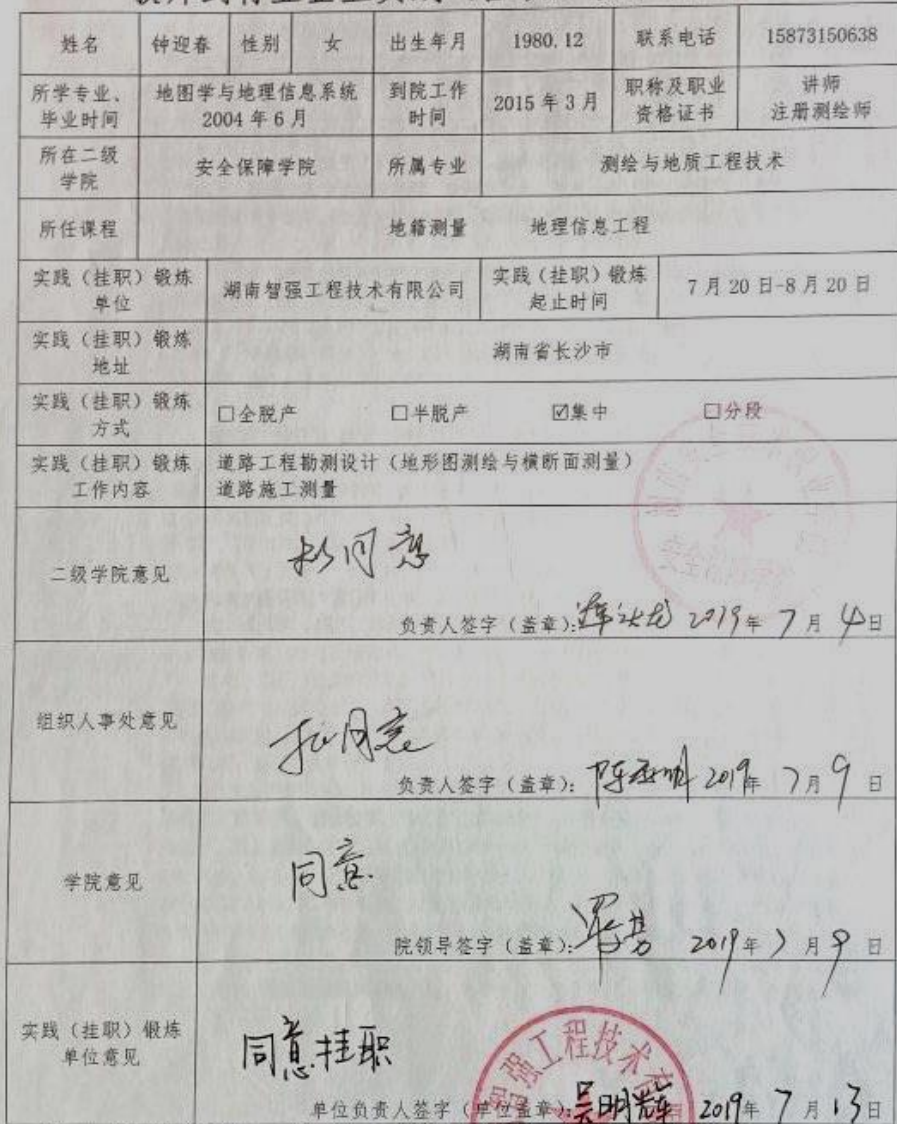 姓名 钟迎春 性别 女 出生年月 1980.12 联系电话 15873150638
所学专业、毕业时间 地图学与地理信息系统 2004年6月 到院工作时间 2015年3月 职称及职业资格证书 讲师 注册测绘师
所在二级学院 安全保障学院 所属专业 测绘与地质工程技术
所任课程 地籍测量 地理信息工程
实践（挂职）锻炼单位 湖南智强工程技术有限公司 实践（挂职）锻炼起止时间 7月20日-8月20日
实践（挂职）锻炼地址 湖南省长沙市
实践（挂职）锻炼方式 □全脱产 □半脱产 ☑集中 □分段
实践（挂职）锻炼工作内容 道路工程勘测设计（地形图测绘与横断面测量）
道路施工测量
二级学院意见 同意
负责人签字（盖章）: 2019年7月4日
组织人事处意见 拟同意
负责人签字（盖章）: 2019年7月9日
学院意见 同意
院领导签字（盖章）: 2019年7月9日
实践（挂职）锻炼单位意见 同意挂职
强工程技术
单位负责人签字（单位盖章）: 吴明辉 2019年7月13日